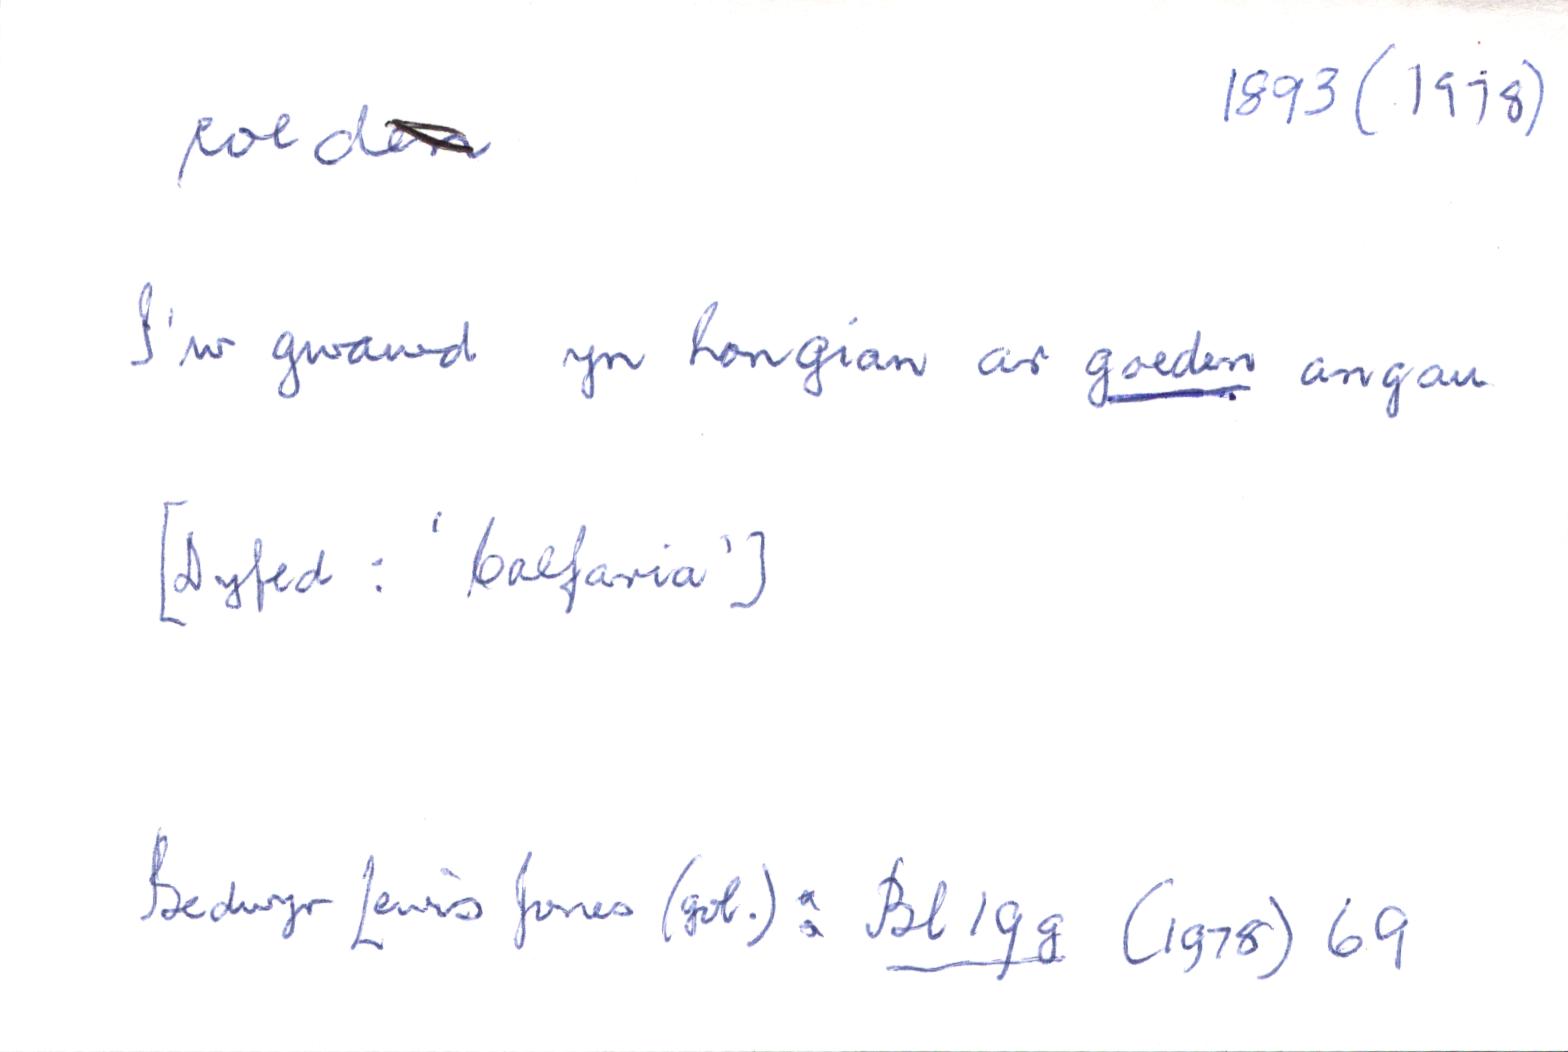 1893 (1978)
coed
I'w gwawd yn hongian ar goeden angau
[Dyfed : 'Calfaria']
Bedwyr Lewis Jones (gol.) : Bl 19g (1978) 69